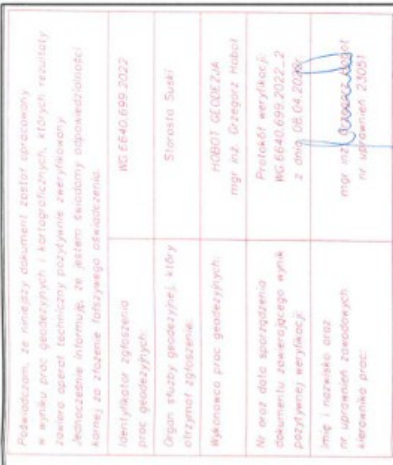 Poświadczam, że niniejszy dokument został opracowany
w wyniku prac geodezyjnych i kartograficznych, których rezultaty
zawiera operat techniczny pozytywnie zweryfikowany.
Jednocześnie informuję, że jestem świadomy odpowiedzialności
karnej za złożenie fałszywego oświadczenia.
Identyfikator zgłoszenia
prac geodezyjnych:
WG.6640.699.2022
Organ służby geodezyjnej, który
otrzymał zgłoszenie:
Starosta Suski
Wykonawca prac geodezyjnych:
HOBOT GEODEZJA
mgr inż. Grzegorz Hobot
Nr oraz data sporządzenia
dokumentu zawierającego wynik
pozytywnej weryfikacji:
Protokół weryfikacji:
WG.6640.699.2022_2
z dnia 08.04.2022r
Imię i nazwisko oraz
nr uprawnień zawodowych
kierownika prac:
mgr inż. Hobot
nr uprawnień 23051